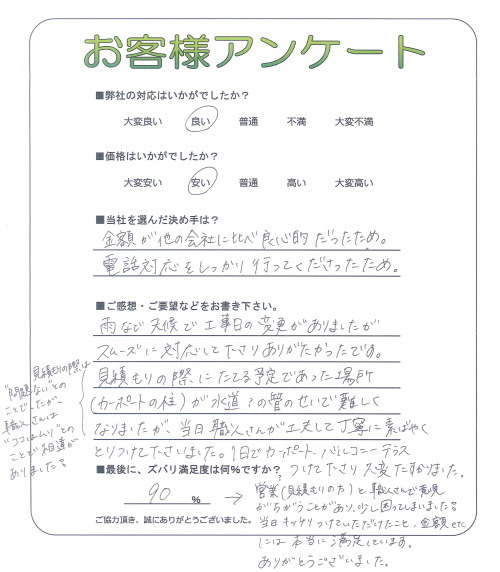 お客様アンケート
■弊社の対応はいかがでしたか？
大変良い 良い 普通 不満 大変不満
■価格はいかがでしたか？
大変安い 安い 普通 高い 大変高い
■当社を選んだ決め手は？
金額が他の会社に比べ良心的だったため。
電話対応をしっかり行ってくださったため。
■ご感想・ご要望などをお書き下さい。
雨など天候で工事日の変更がありましたが
スムーズに対応して下さりありがたかったです。
見積もりの際にたてる予定であった場所
(カーポートの柱)が水道の管のせいで難しく
なりましたが、当日職人さんが工夫して丁寧に素ばやく
とりつけて下さいました。1日でカーポート、バルコニー、テラス
つけて下さり大変たすかりました。
見積もりの際は
"問題ない"との
ことでしたが、
職人さんは
"ココはムリ"との
ことで相違が
ありました。
■最後に、ズバリ満足度は何%ですか？
90 %
→ 営業(見積もりの方)と職人さんで意見
がちがうことがあり、少し困ってしまいましたが
当日キッチリつけていただけたこと、金額etc
には本当に満足しています。
ありがとうございました。
ご協力頂き、誠にありがとうございました。